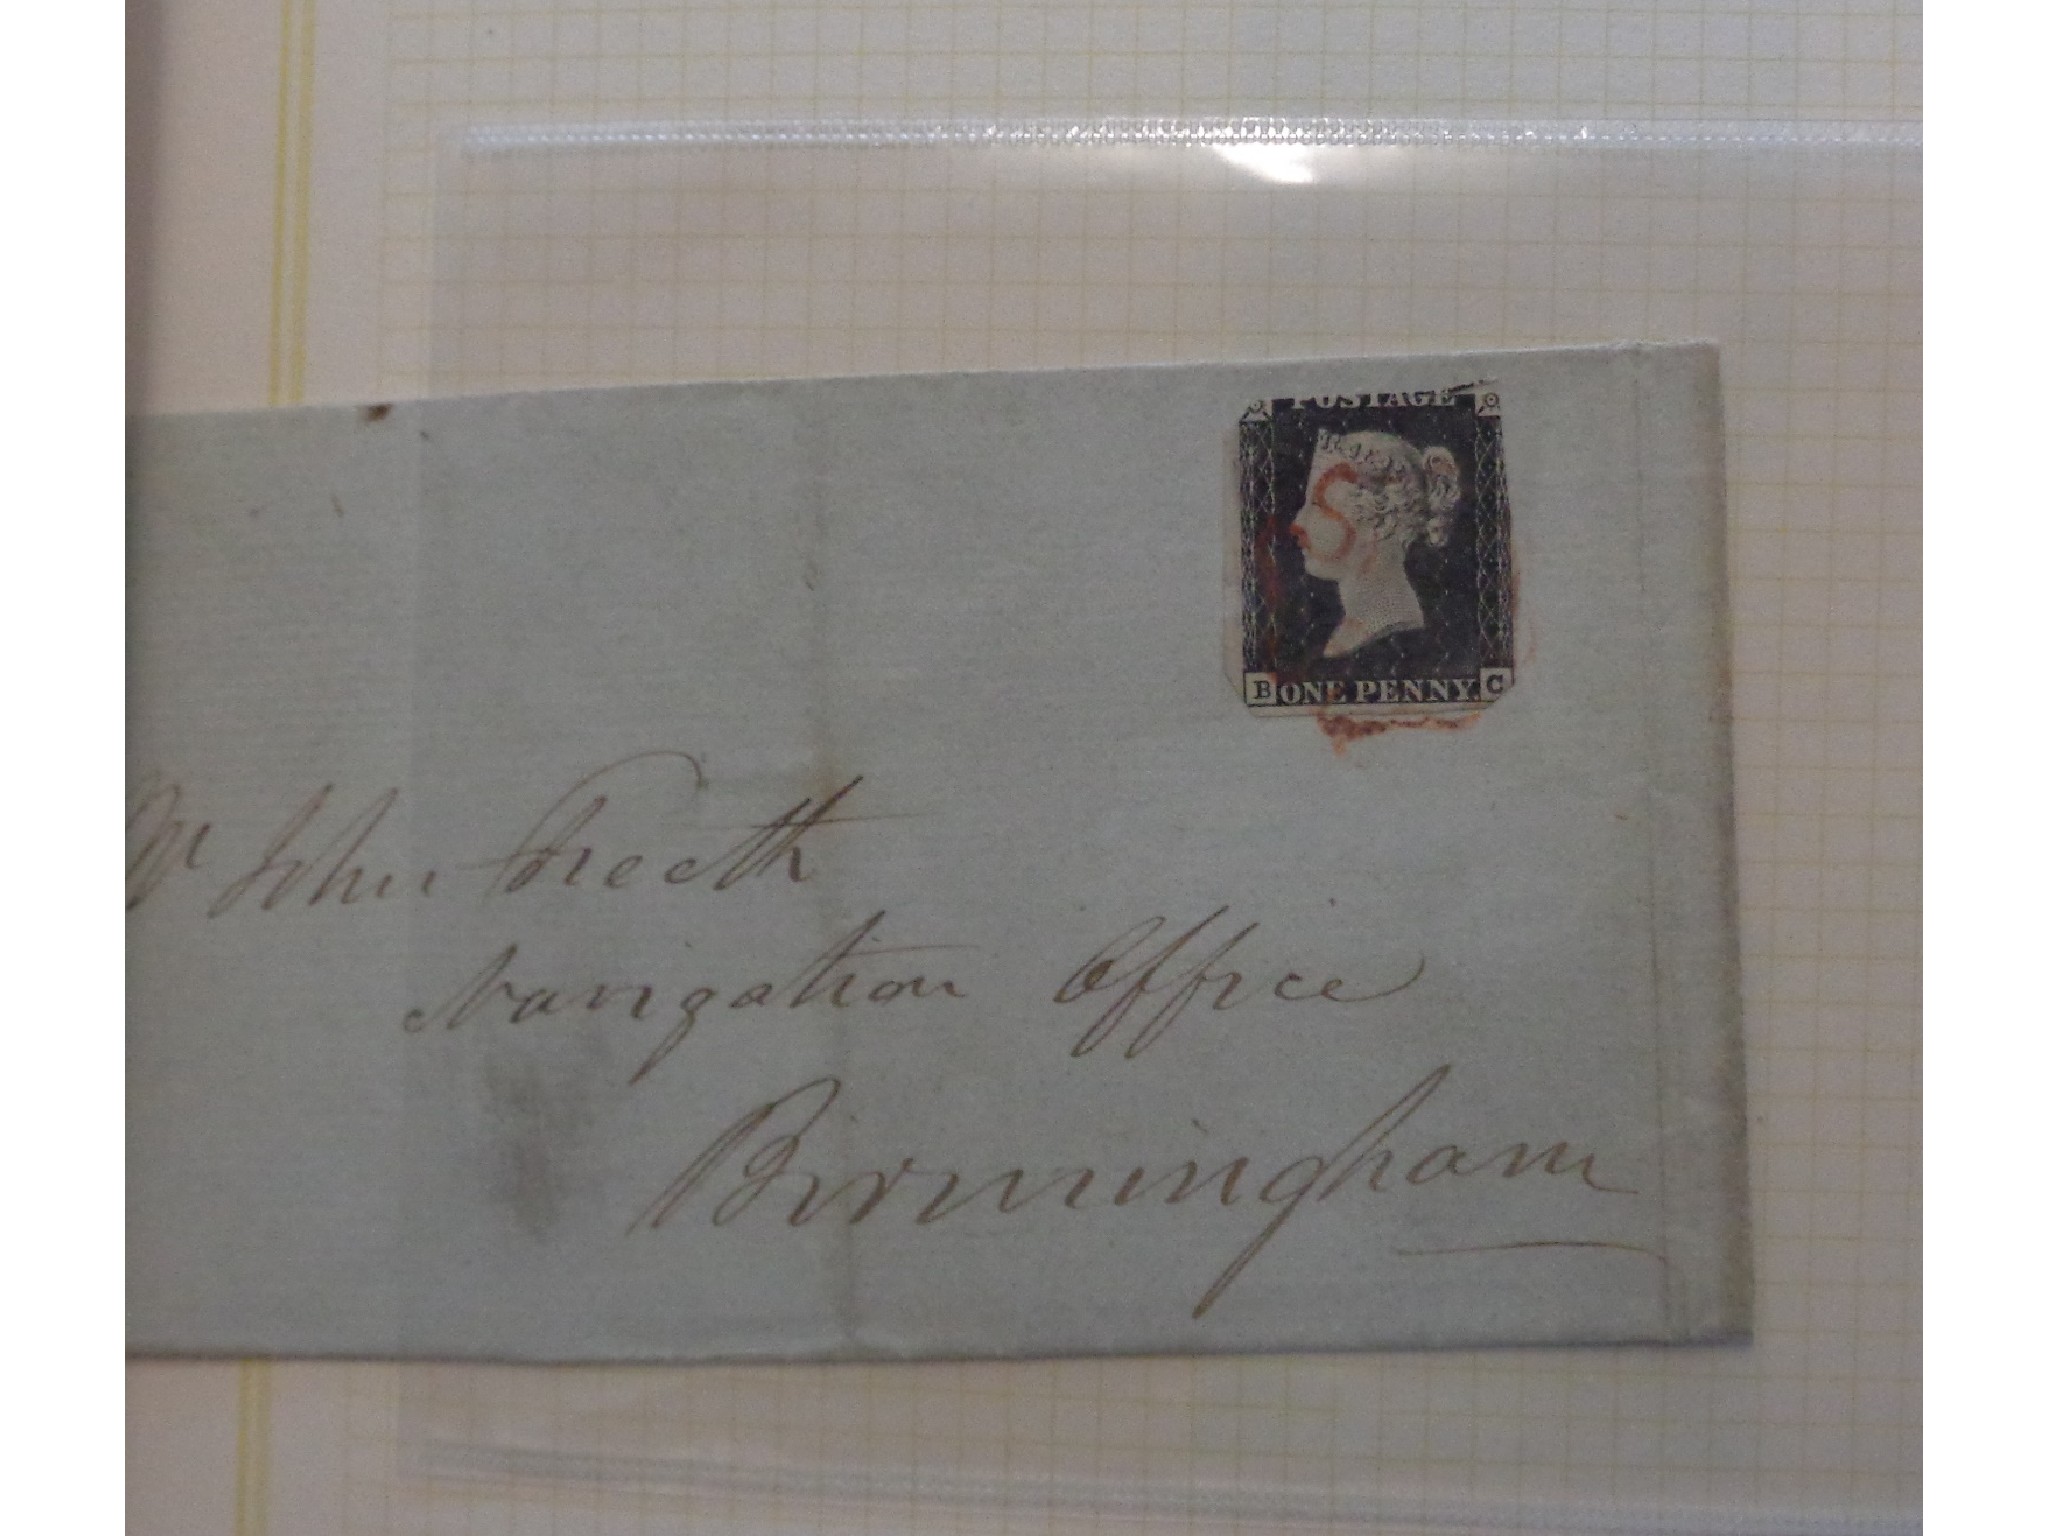 POSTAGE
B ONE PENNY. C
Mr John Freeth
Navigation Office
Birmingham